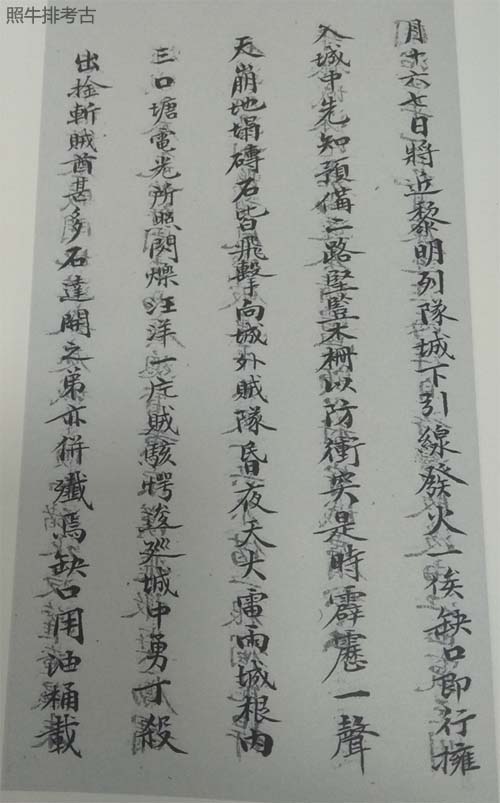 照牛排考古
月十六七日將近黎明列隊城下引線發火一俟缺口即行擁
入城中先知預備二路堅豎木柵以防衝突是時霹靂一聲
天崩地塌磚石皆飛擊向城外賊隊昏夜天大雷雨城根內
三口塘電光所照閃爍汪洋一片賊駭愕逡巡城中勇丁殺
出捡斬賊酋甚多石達開之弟亦併殲焉缺口用油桶載